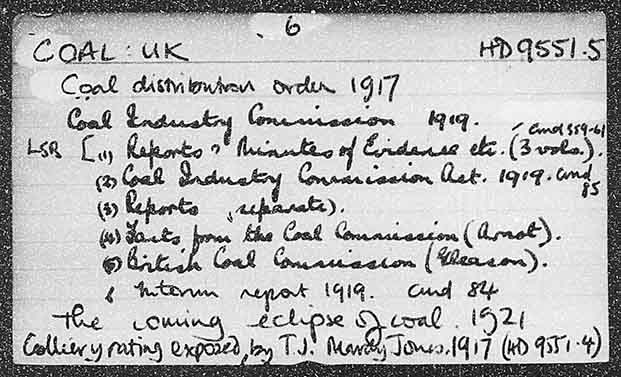 6
COAL : UK HD 9551.5
Coal distribution order 1917
Coal Industry Commission 1919.
LSR [(1) Reports & Minutes of Evidence etc. (3 vols.). Cmd 359-61
(2) Coal Industry Commission Act. 1919. cmd 85
(3) Reports (separate).
(4) Facts from the Coal Commission (Arnot).
(5) British Coal Commission (Gleason).
Interim report 1919. cmd 84
The coming eclipse of coal. 1921
Colliery rating exposed, by T.J. Mardy Jones. 1917 (HD 9551.4)